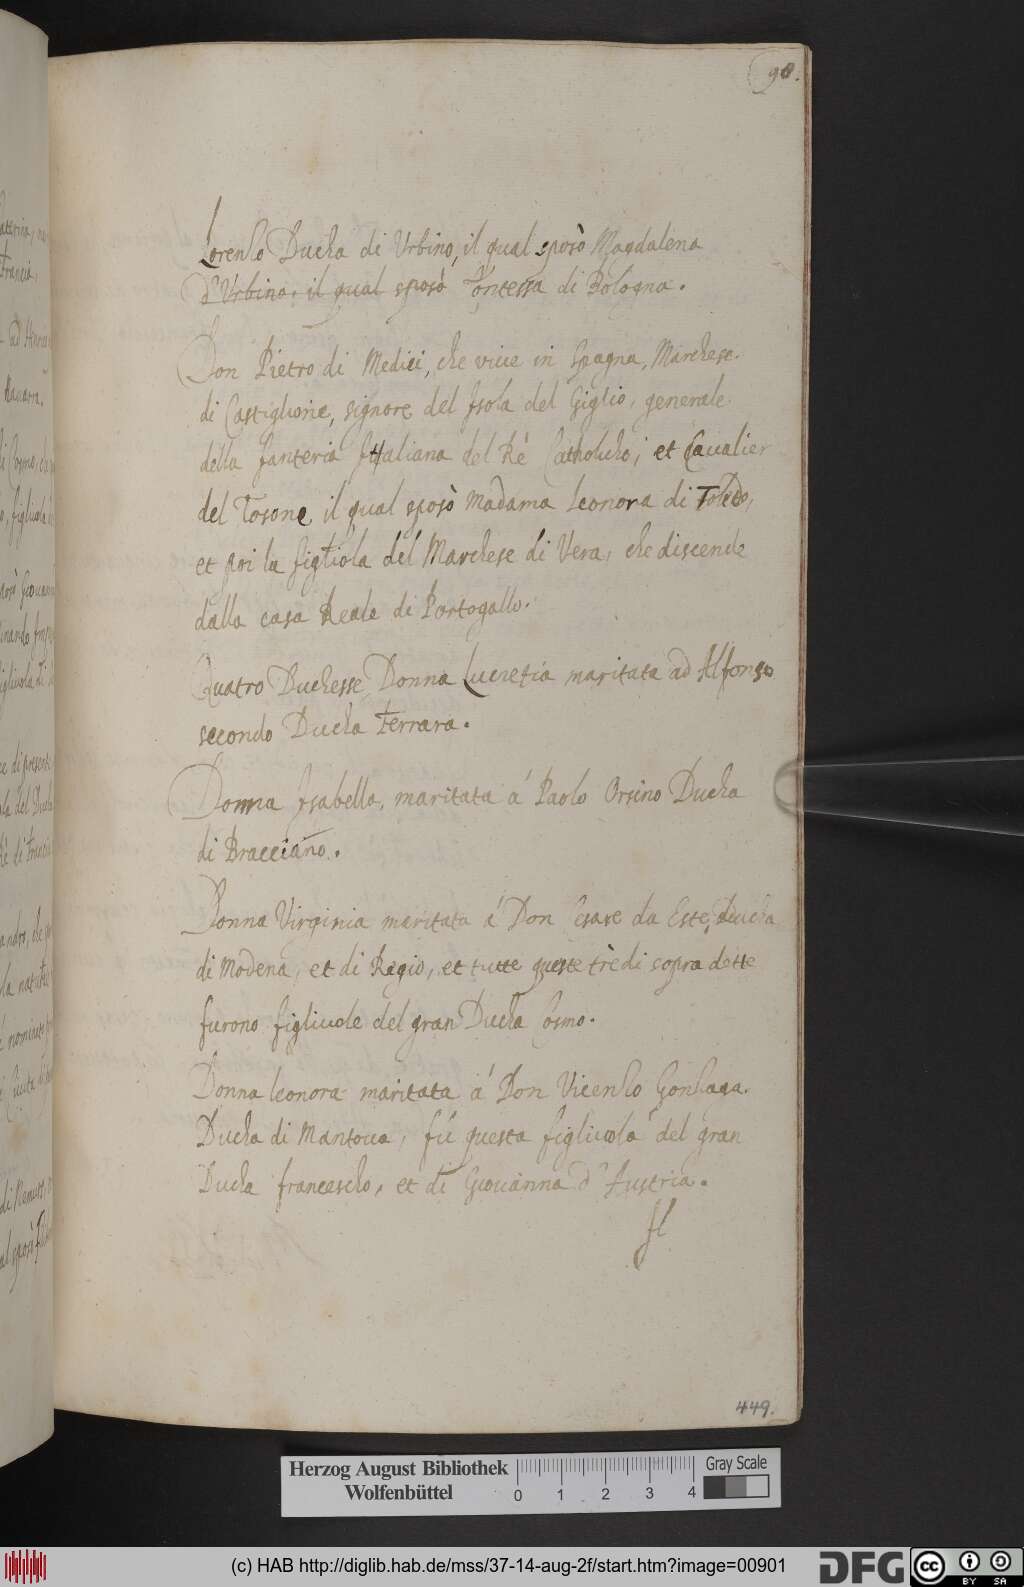 98.
Lorenso Ducha di Urbino, il qual sposò Magdalena
d'Urbino, il qual sposò Contessa di Bologna.
Don Pietro di Medici, che viue in Spagna, Marchese
di Castiglione, signore del Isola del Giglio, generale
della fanteria Ittaliana del Rè Catholicho, et Caualier
del Tosone, il qual sposò Madama Leonora di Toledo,
et poi la figliola del Marchese di Vera, che discende
dalla casa Reale di Portogallo.
Quatro Duchesse, Donna Lucretia maritata ad Alfonso
secondo Ducha Ferrara.
Donna Isabella, maritata á Paolo Orsino Ducha
di Bracciano.
Donna Virginia maritata á Don Cesare da Este, Ducha
di Modena, et di Regio, et tutte queste trè di sopra dette
furono figliuole del gran Ducha Cosmo.
Donna Leonora maritata á Don Vicenso Gonsaga
Ducha di Mantoua, fú questa figliuola del gran
Ducha francescho, et di Giouanna d'Austria.
Il
449.
Herzog August Bibliothek
Wolfenbüttel
0 1 2 3 4
Gray Scale
(c) HAB http://diglib.hab.de/mss/37-14-aug-2f/start.htm?image=00901
DFG
cc
BY SA